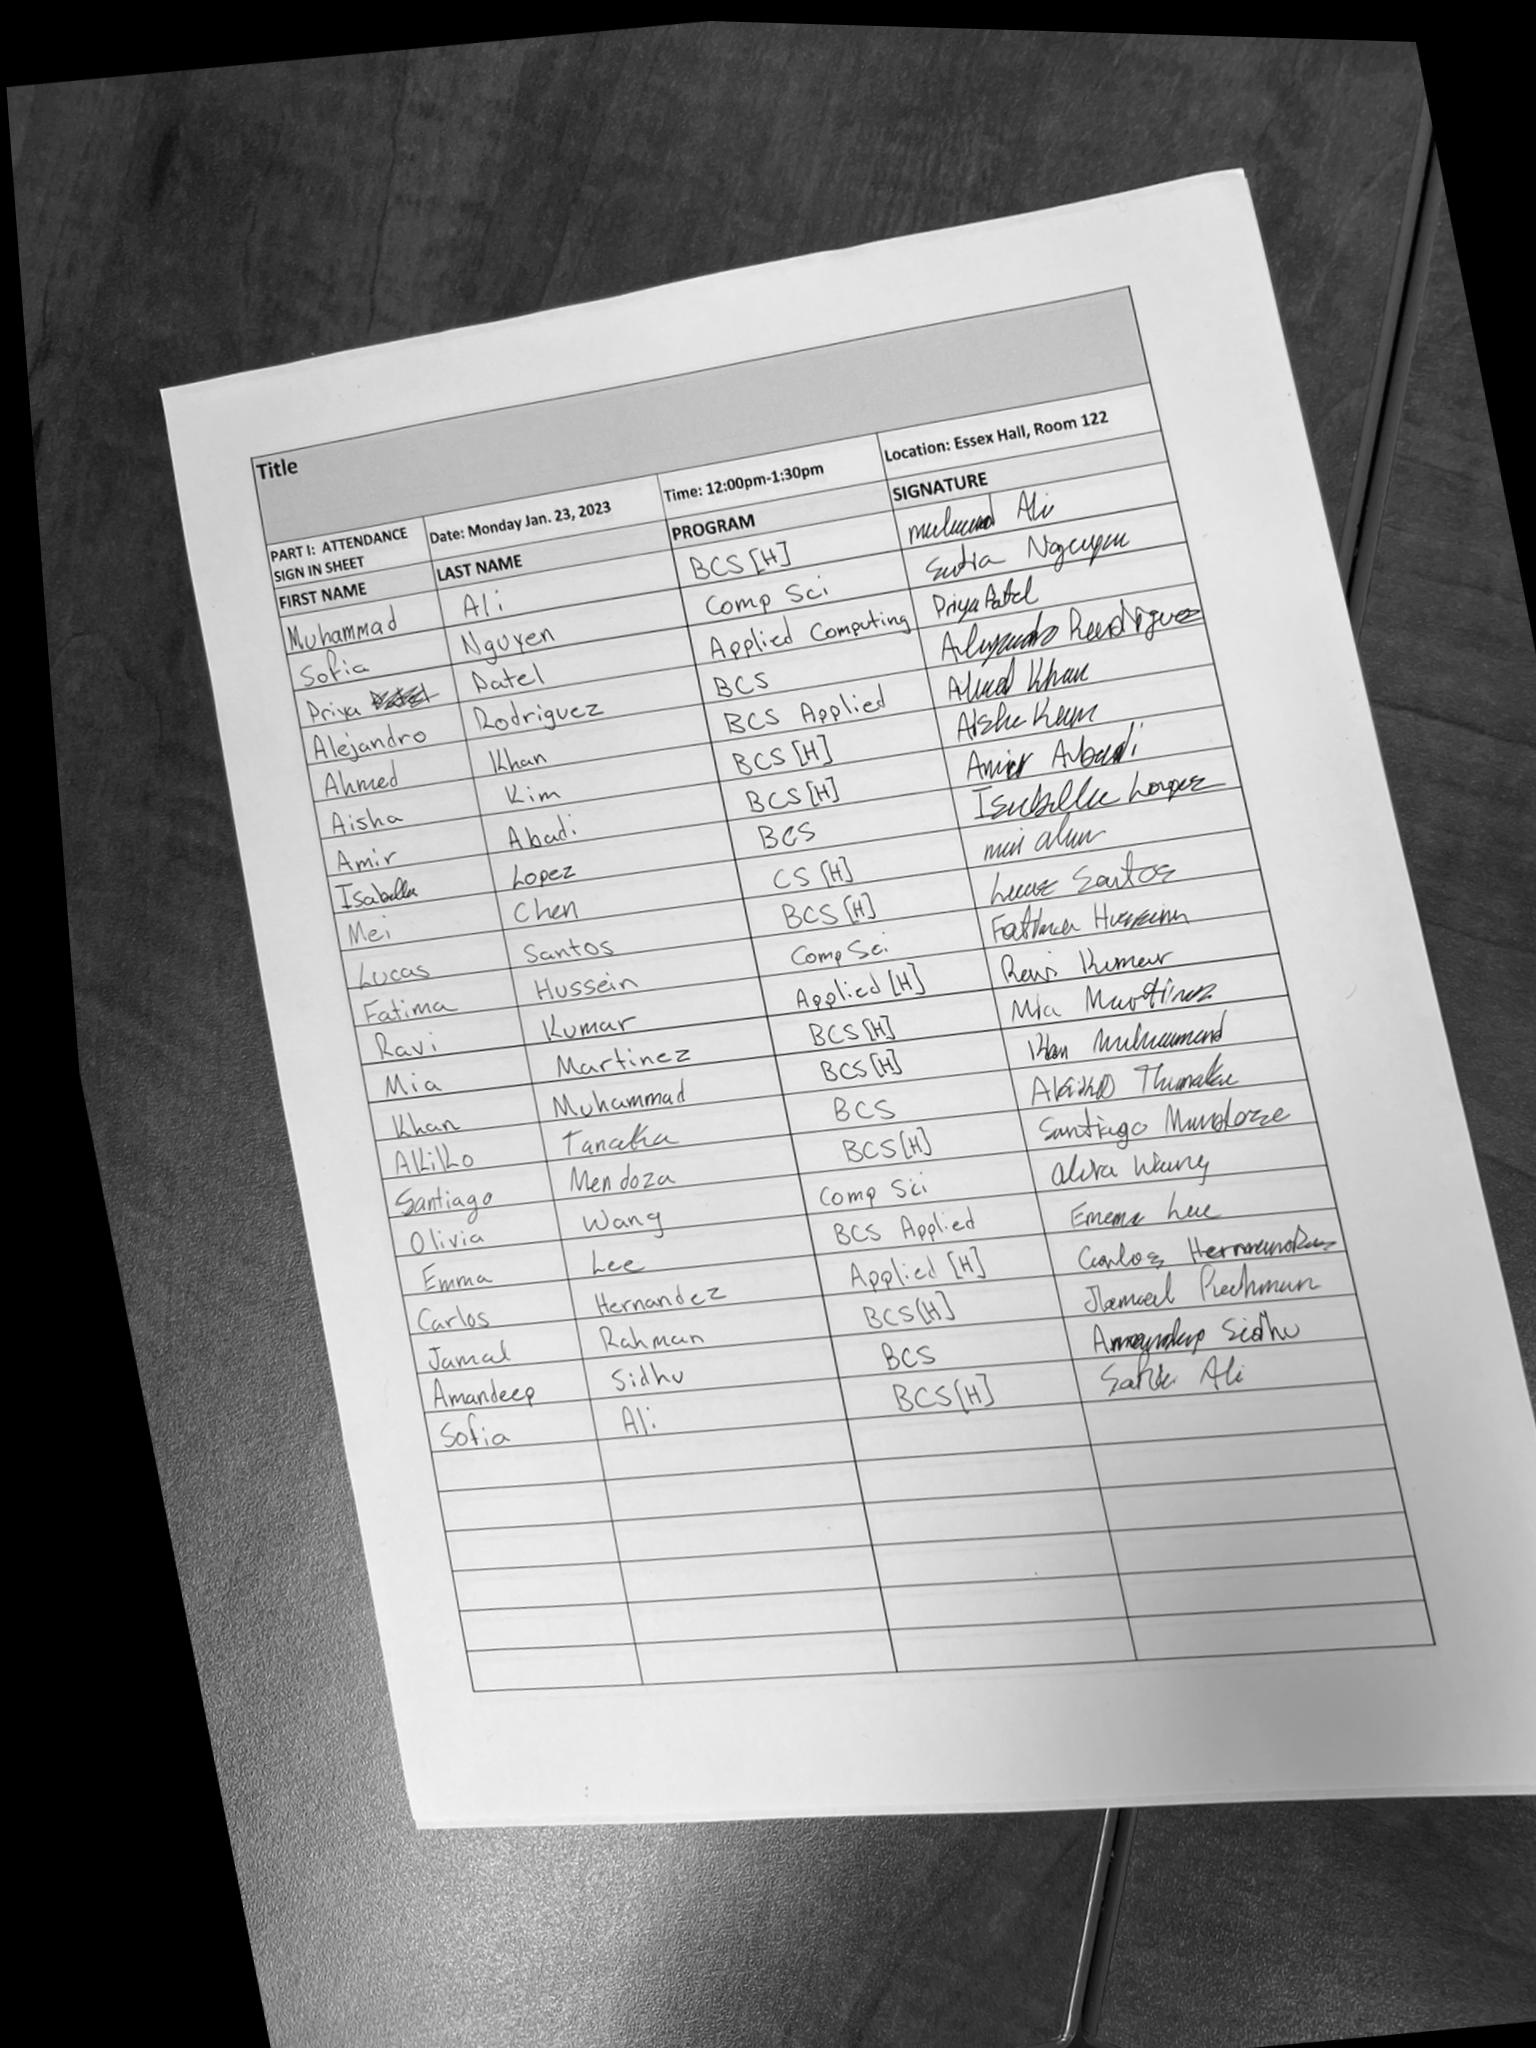 Title
PART I: ATTENDANCE SIGN IN SHEET Date: Monday Jan. 23, 2023 Time: 12:00pm-1:30pm Location: Essex Hall, Room 122
FIRST NAME LAST NAME PROGRAM SIGNATURE
Muhammad Ali BCS [H] Ali
Sofia Nguyen Comp Sci Nguyen
Priya Patel Applied Computing Priya Patel
Alejandro Rodriguez BCS
Ahmed Khan BCS Applied Khan
Aisha Kim BCS [H]
Amir Abadi BCS [H] Amir Abadi
Isabella Lopez BCS Isabella Lopez
Mei Chen CS [H]
Lucas Santos BCS [H] Lucas Santos
Fatima Hussein Comp Sci Fatima Hussein
Ravi Kumar Applied [H] Ravi Kumar
Mia Martinez BCS [H] Mia Martinez
Khan Muhammad BCS [H] Khan
Akiko Tanaka BCS Akiko
Santiago Mendoza BCS [H] Santiago
Olivia Wang Comp Sci Wang
Emma Lee BCS Applied Emema Lee
Carlos Hernandez Applied [H] Carlos
Jamal Rahman BCS [H]
Amandeep Sidhu BCS Sidhu
Sofia Ali BCS [H] Ali